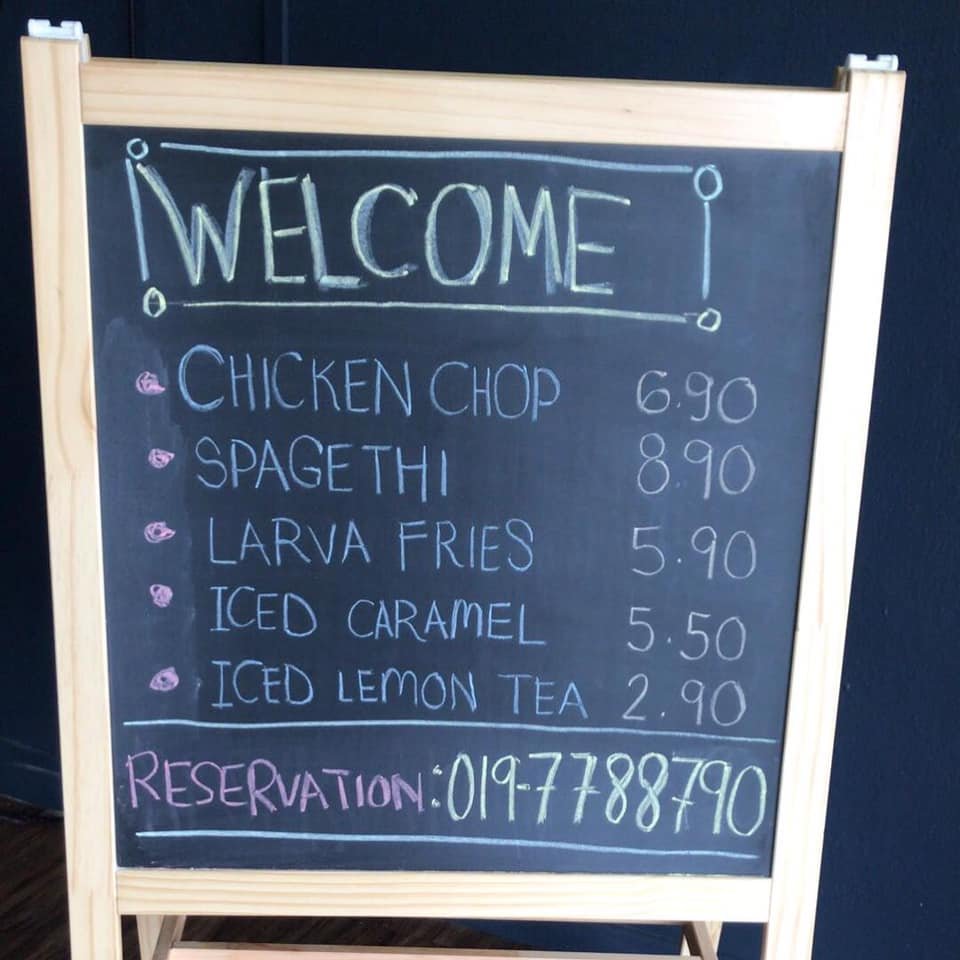 WELCOME
CHICKEN CHOP 6.90
SPAGETHI 8.90
LARVA FRIES 5.90
ICED CARAMEL 5.50
ICED LEMON TEA 2.90
RESERVATION:019-7788790